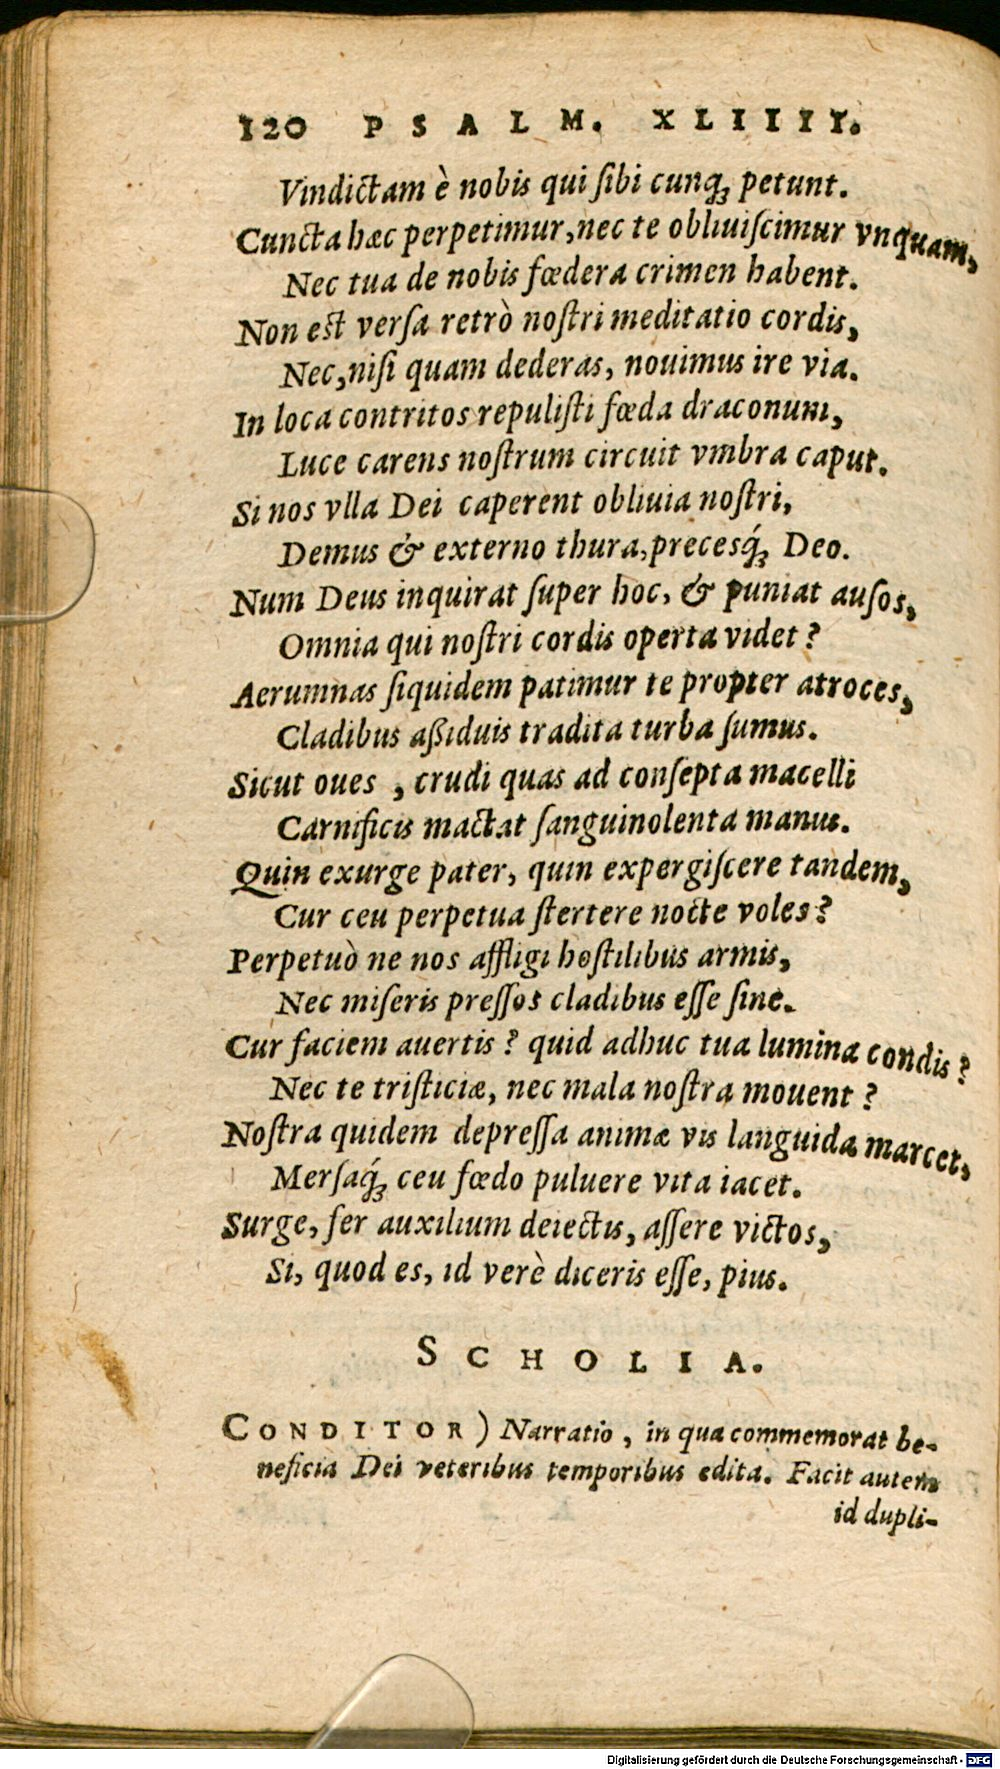 120 PSALM. XLIIII.
Vindictam è nobis qui ſibi cunq; petunt.
Cuncta hæc perpetimur, nec te obliuiſcimur vnquam,
Nec tua de nobis fœdera crimen habent.
Non est verſa retrò noſtri meditatio cordis,
Nec, niſi quam dederas, nouimus ire via.
In loca contritos repuliſti fœda draconum,
Luce carens noſtrum circuit vmbra caput.
Si nos vlla Dei caperent obliuia noſtri,
Demus & externo thura, precesq́; Deo.
Num Deus inquirat ſuper hoc, & puniat auſos,
Omnia qui noſtri cordis operta videt?
Aerumnas ſiquidem patimur te propter atroces,
Cladibus aßiduis tradita turba ſumus.
Sicut oues, crudi quas ad conſepta macelli
Carnificis mactat ſanguinolenta manus.
Quin exurge pater, quin expergiſcere tandem,
Cur ceu perpetua ſtertere nocte voles?
Perpetuò ne nos affligi hoſtilibus armis,
Nec miſeris preſſos cladibus eſſe ſine.
Cur faciem auertis? quid adhuc tua lumina condis?
Nec te triſticiæ, nec mala noſtra mouent?
Noſtra quidem depreſſa animæ vis languida marcet,
Merſaq́; ceu fœdo puluere vita iacet.
Surge, fer auxilium deiectis, aſſere victos,
Si, quod es, id verè diceris eſſe, pius.
SCHOLIA.
CONDITOR) Narratio, in qua commemorat be-
neficia Dei veteribus temporibus edita. Facit autem
id dupli-
Digitalisierung gefördert durch die Deutsche Forschungsgemeinschaft - DFG